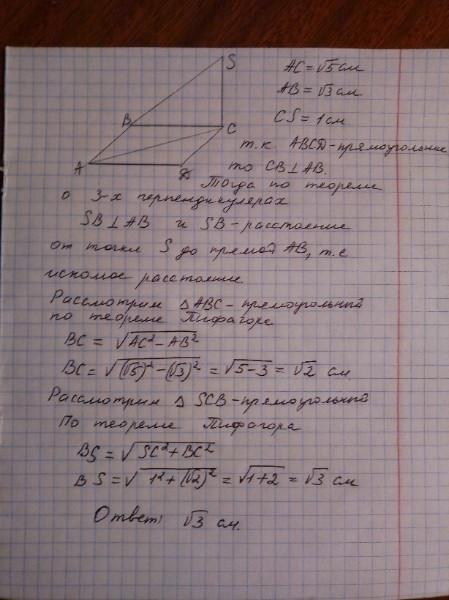 S
AC = √5 см
AB = √3 см
CS = 1 см
B
C
A
т.к. ABCD - прямоугольник
то CB ⊥ AB.
Тогда по теореме
о 3-х перпендикулярах
SB ⊥ AB и SB - расстояние
от точки S до прямой AB, т.е
искомое расстояние
Рассмотрим △ABC - прямоугольный
по теореме Пифагора
BC = √AC² - AB²
BC = √(√5)² - (√3)² = √5-3 = √2 см
Рассмотрим △ SCB - прямоугольный
По теореме Пифагора
BS = √SC² + BC²
BS = √1² + (√2)² = √1+2 = √3 см
Ответ: √3 см.